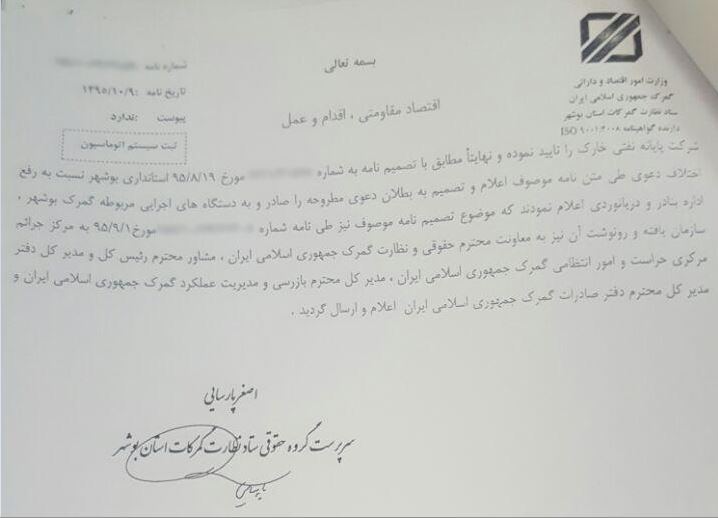 بسمه تعالی
شماره نامه
تاریخ نامه :۱۳۹۵/۱۰/۹
پیوست :ندارد
ثبت سیستم اتوماسیون
وزارت امور اقتصاد و دارائی
گمرک جمهوری اسلامی ایران
ستاد نظارت گمرکات استان بوشهر
دارنده گواهینامه ISO ۹۰۰۱:۲۰۰۸
اقتصاد مقاومتی ، اقدام و عمل
شرکت پایانه نفتی خارک را تایید نموده و نهایتاً مطابق با تصمیم نامه به شماره مورخ ۹۵/۸/۱۹ استانداری بوشهر نسبت به رفع
اختلاف دعوی طی متن نامه موصوف اعلام و تصمیم به بطلان دعوی مطروحه را صادر و به دستگاه های اجرایی مربوطه گمرک بوشهر ،
اداره بنادر و دریانوردی اعلام نمودند که موضوع تصمیم نامه موصوف نیز طی نامه شماره مورخ۹۵/۹/۱ به مرکز جرائم
سازمان یافته و رونوشت آن نیز به معاونت محترم حقوقی و نظارت گمرک جمهوری اسلامی ایران ، مشاور محترم رئیس کل و مدیر کل دفتر
مرکزی حراست و امور انتظامی گمرک جمهوری اسلامی ایران ، مدیر کل محترم بازرسی و مدیریت عملکرد گمرک جمهوری اسلامی ایران و
مدیر کل محترم دفتر صادرات گمرک جمهوری اسلامی ایران اعلام و ارسال گردید .
اصغر پارسایی
سرپرست گروه حقوقی ستاد نظارت گمرکات استان بوشهر